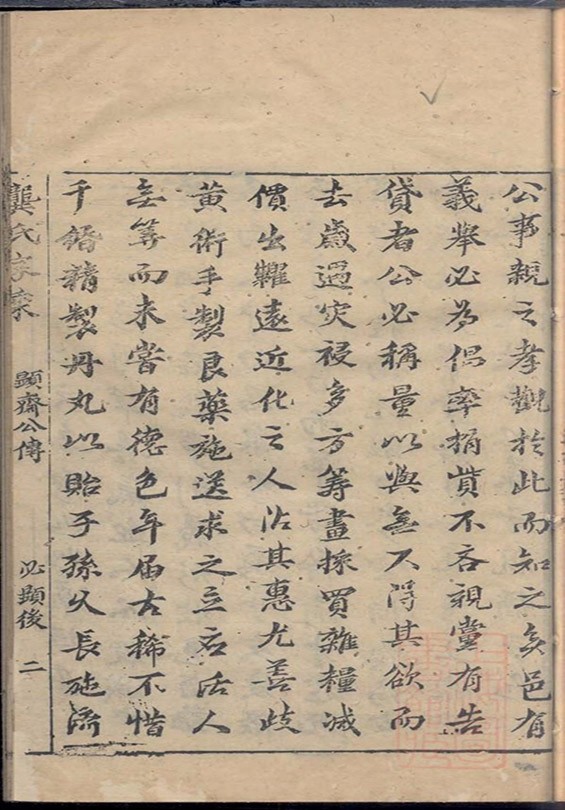 公事親之孝觀於此而知之矣邑有
義舉必為倡率捐貲不吝親黨有告
貸者公必稱量以與無不得其欲而
去歲遇灾祲多方籌畫採買雜糧減
價出糶遠近化之人沾其惠尤善歧
黃術手製良藥施送求之立應活人
無筭而未嘗有德色年届古稀不惜
千緡精製丹丸以貽子孫久長施濟
龔氏家乘
顯齋公傳
必顯後
二